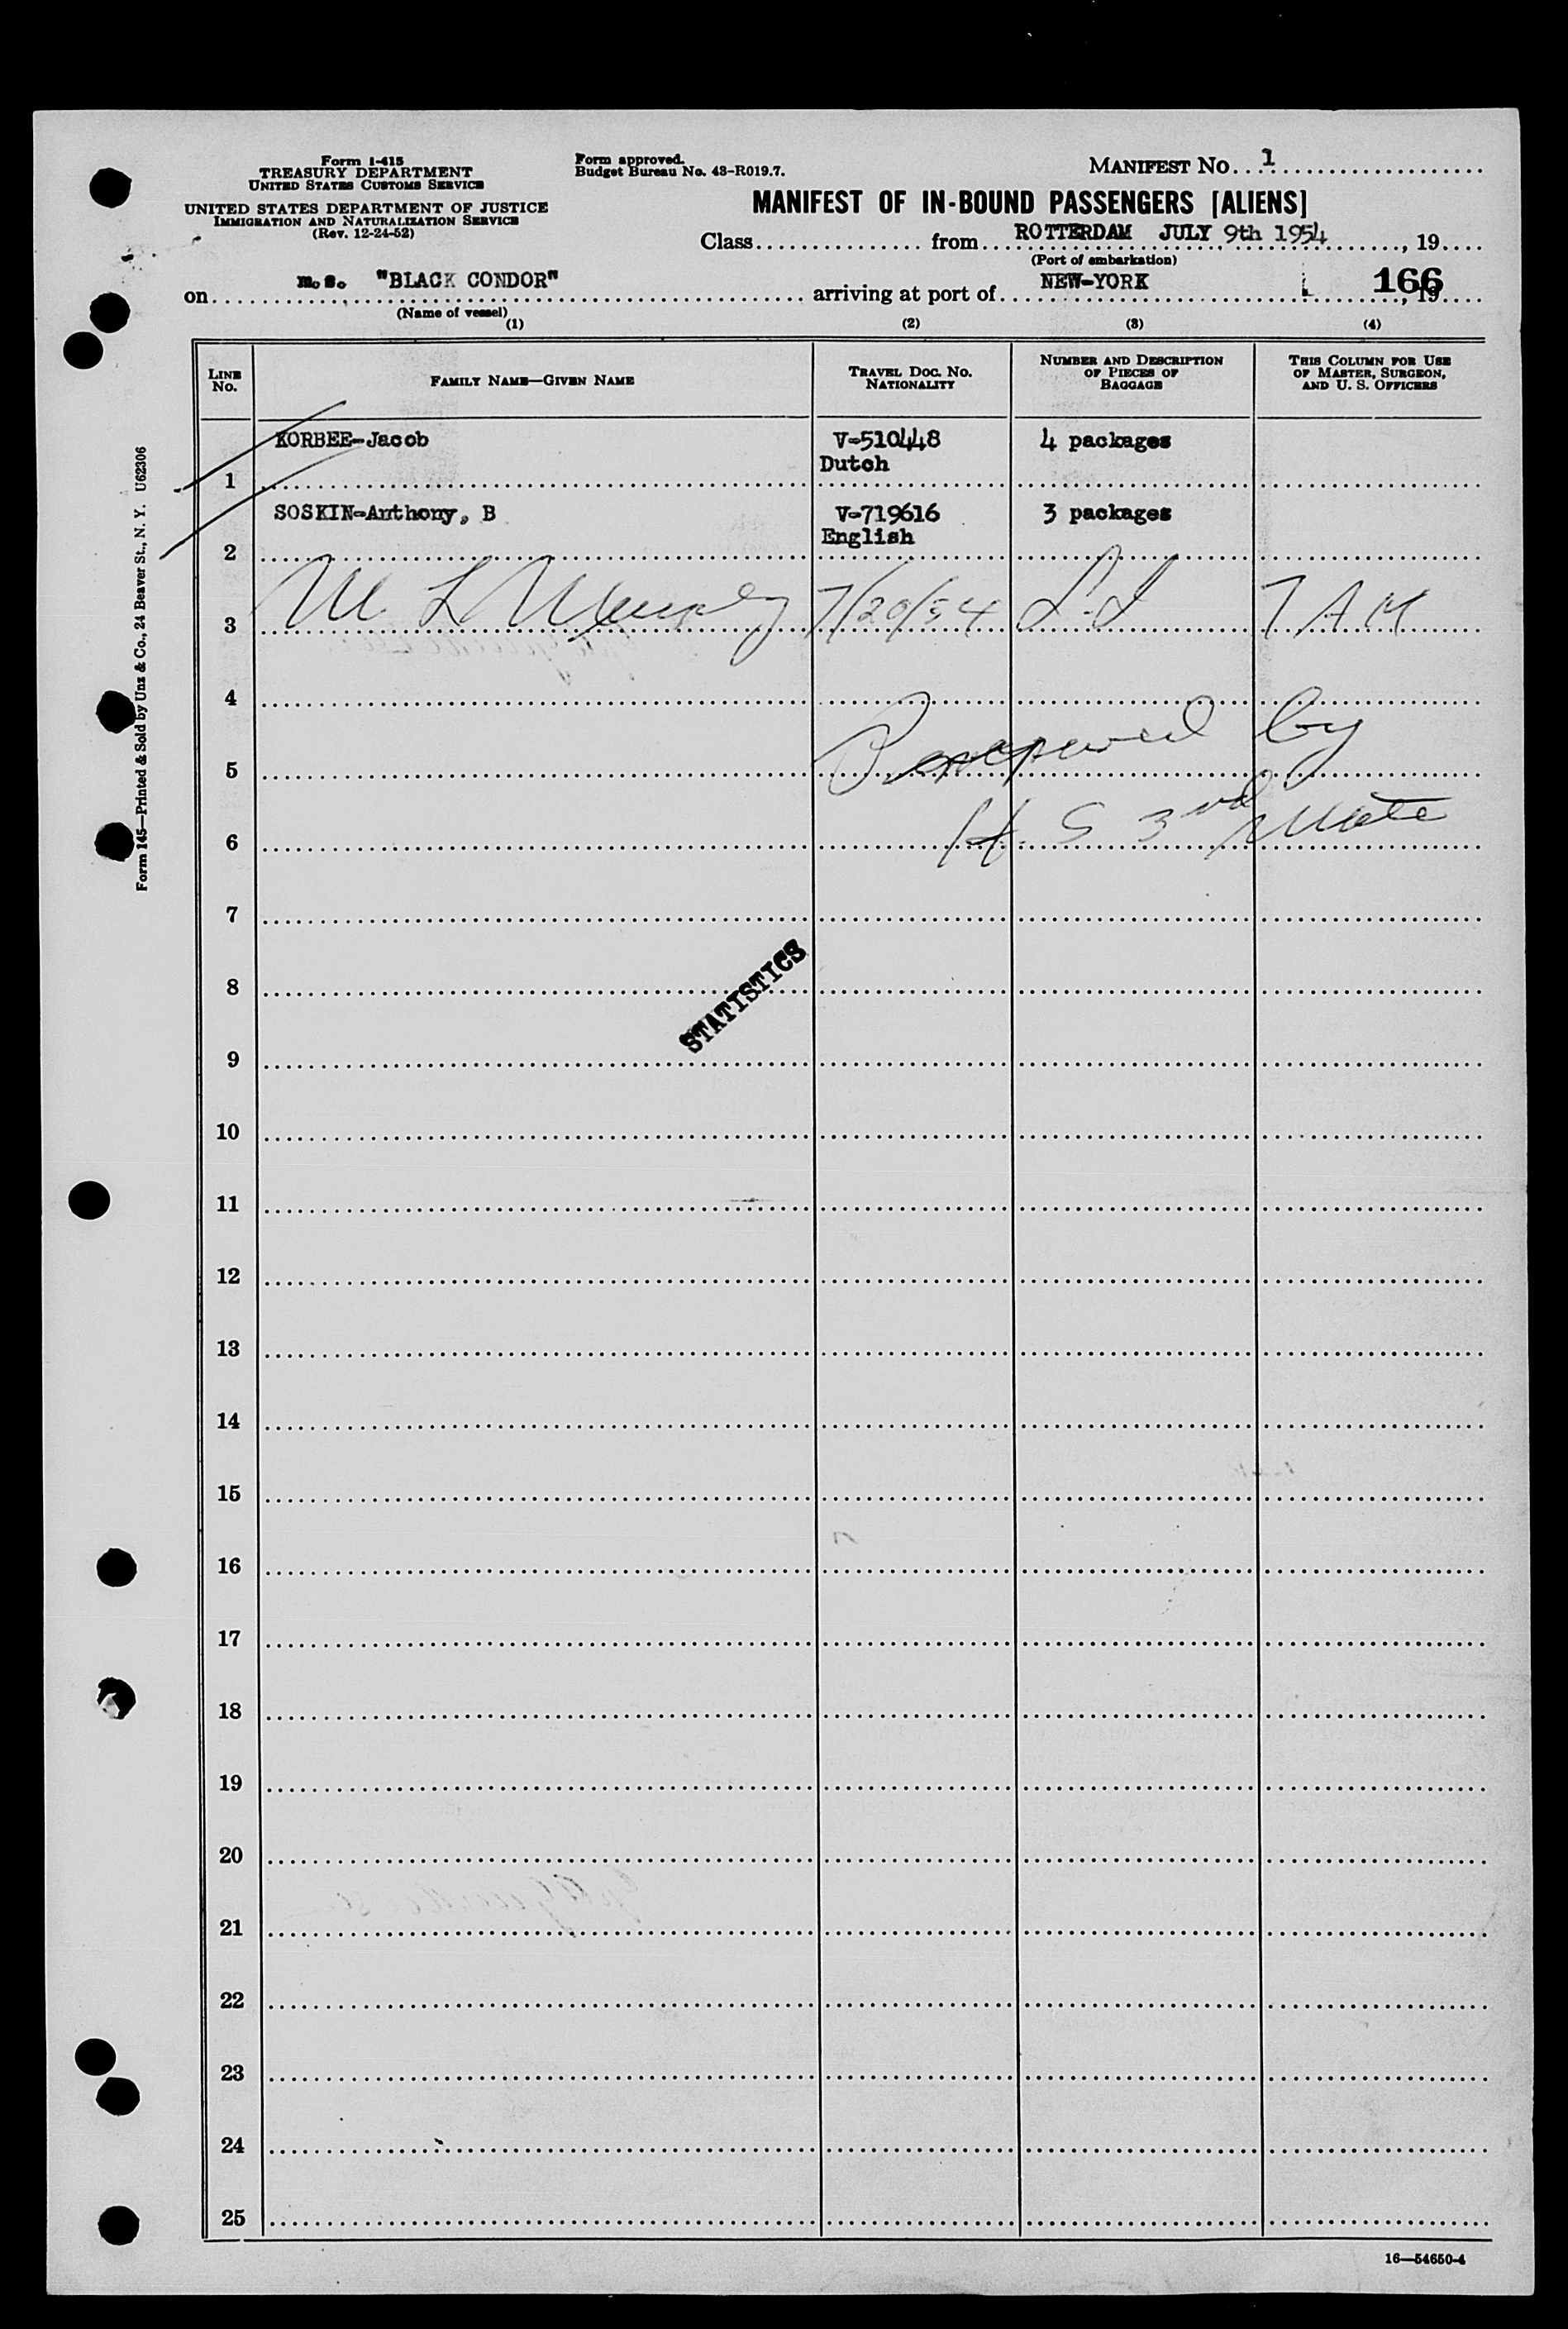 Form I-415
TREASURY DEPARTMENT
UNITED STATES CUSTOMS SERVICE
UNITED STATES DEPARTMENT OF JUSTICE
IMMIGRATION AND NATURALIZATION SERVICE
(Rev. 12-24-52)
Form approved.
Budget Bureau No. 43-R019.7.
MANIFEST NO. 1
MANIFEST OF IN-BOUND PASSENGERS [ALIENS]
Class from ROTTERDAM JULY 9th 1954, 19
(Port of embarkation)
on m.s. "BLACK CONDOR" arriving at port of NEW-YORK , 19
166
(Name of vessel)
(1) (2) (3) (4)
LINE NO. FAMILY NAME—GIVEN NAME TRAVEL DOC. NO. NATIONALITY NUMBER AND DESCRIPTION OF PIECES OF BAGGAGE THIS COLUMN FOR USE OF MASTER, SURGEON, AND U. S. OFFICERS
KORBEE-Jacob V-510448 4 packages
1 Dutch
SOSKIN-Anthony, B V-719616 3 packages
2 English
3 M L Murphy 7/20/54 7 AM
4
5 by
6 H. S 3rd Mate
7
STATISTICS
8
9
10
11
12
13
14
15
16
17
18
19
20
21
22
23
24
25
16—54650-4
Form 145—Printed & Sold by Unz & Co., 24 Beaver St., N. Y. U62306